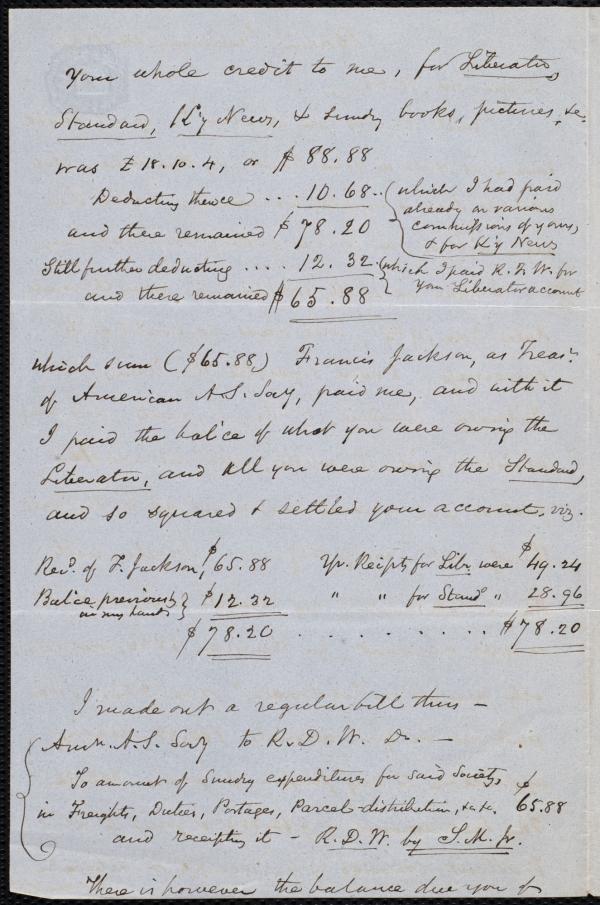 Your whole credit to me, for Liberator,
Standard, K'y News, & sundry books, pictures, &c
was £18.10.4, or $88.88
Deducting thence ... 10.68.. (which I had paid
already on various
commissions of yours,
& for K'y News
and there remained $78.20
Still further deducting .... 12.32. (which I paid R. F. W. for
your Liberator account
and there remained $65.88
which sum ($65.88,) Francis Jackson, as Treasr.
of American A. S. Socy, paid me, and with it
I paid the bal'ce of what you were owing the
Liberator, and all you were owing the Standard,
and so squared & settled your account, viz.
Recd. of F. Jackson, $65.88 Yr. Receipts for Lib. were $49.24
Bal'ce previously in my hands } $12.32 " " for Stand " 28.96
$78.20 . . . . . . . . $78.20
I made out a regular bill thus –
Amn. A. S. Socy to R. D. W. Dr. –
To amount of sundry expenditures for said Society,
in Freights, Duties, Postages, Parcel-distribution, &c. &c. $65.88
and receipting it – R. D. W. by S. M. Jr.
There is however the balance due you of